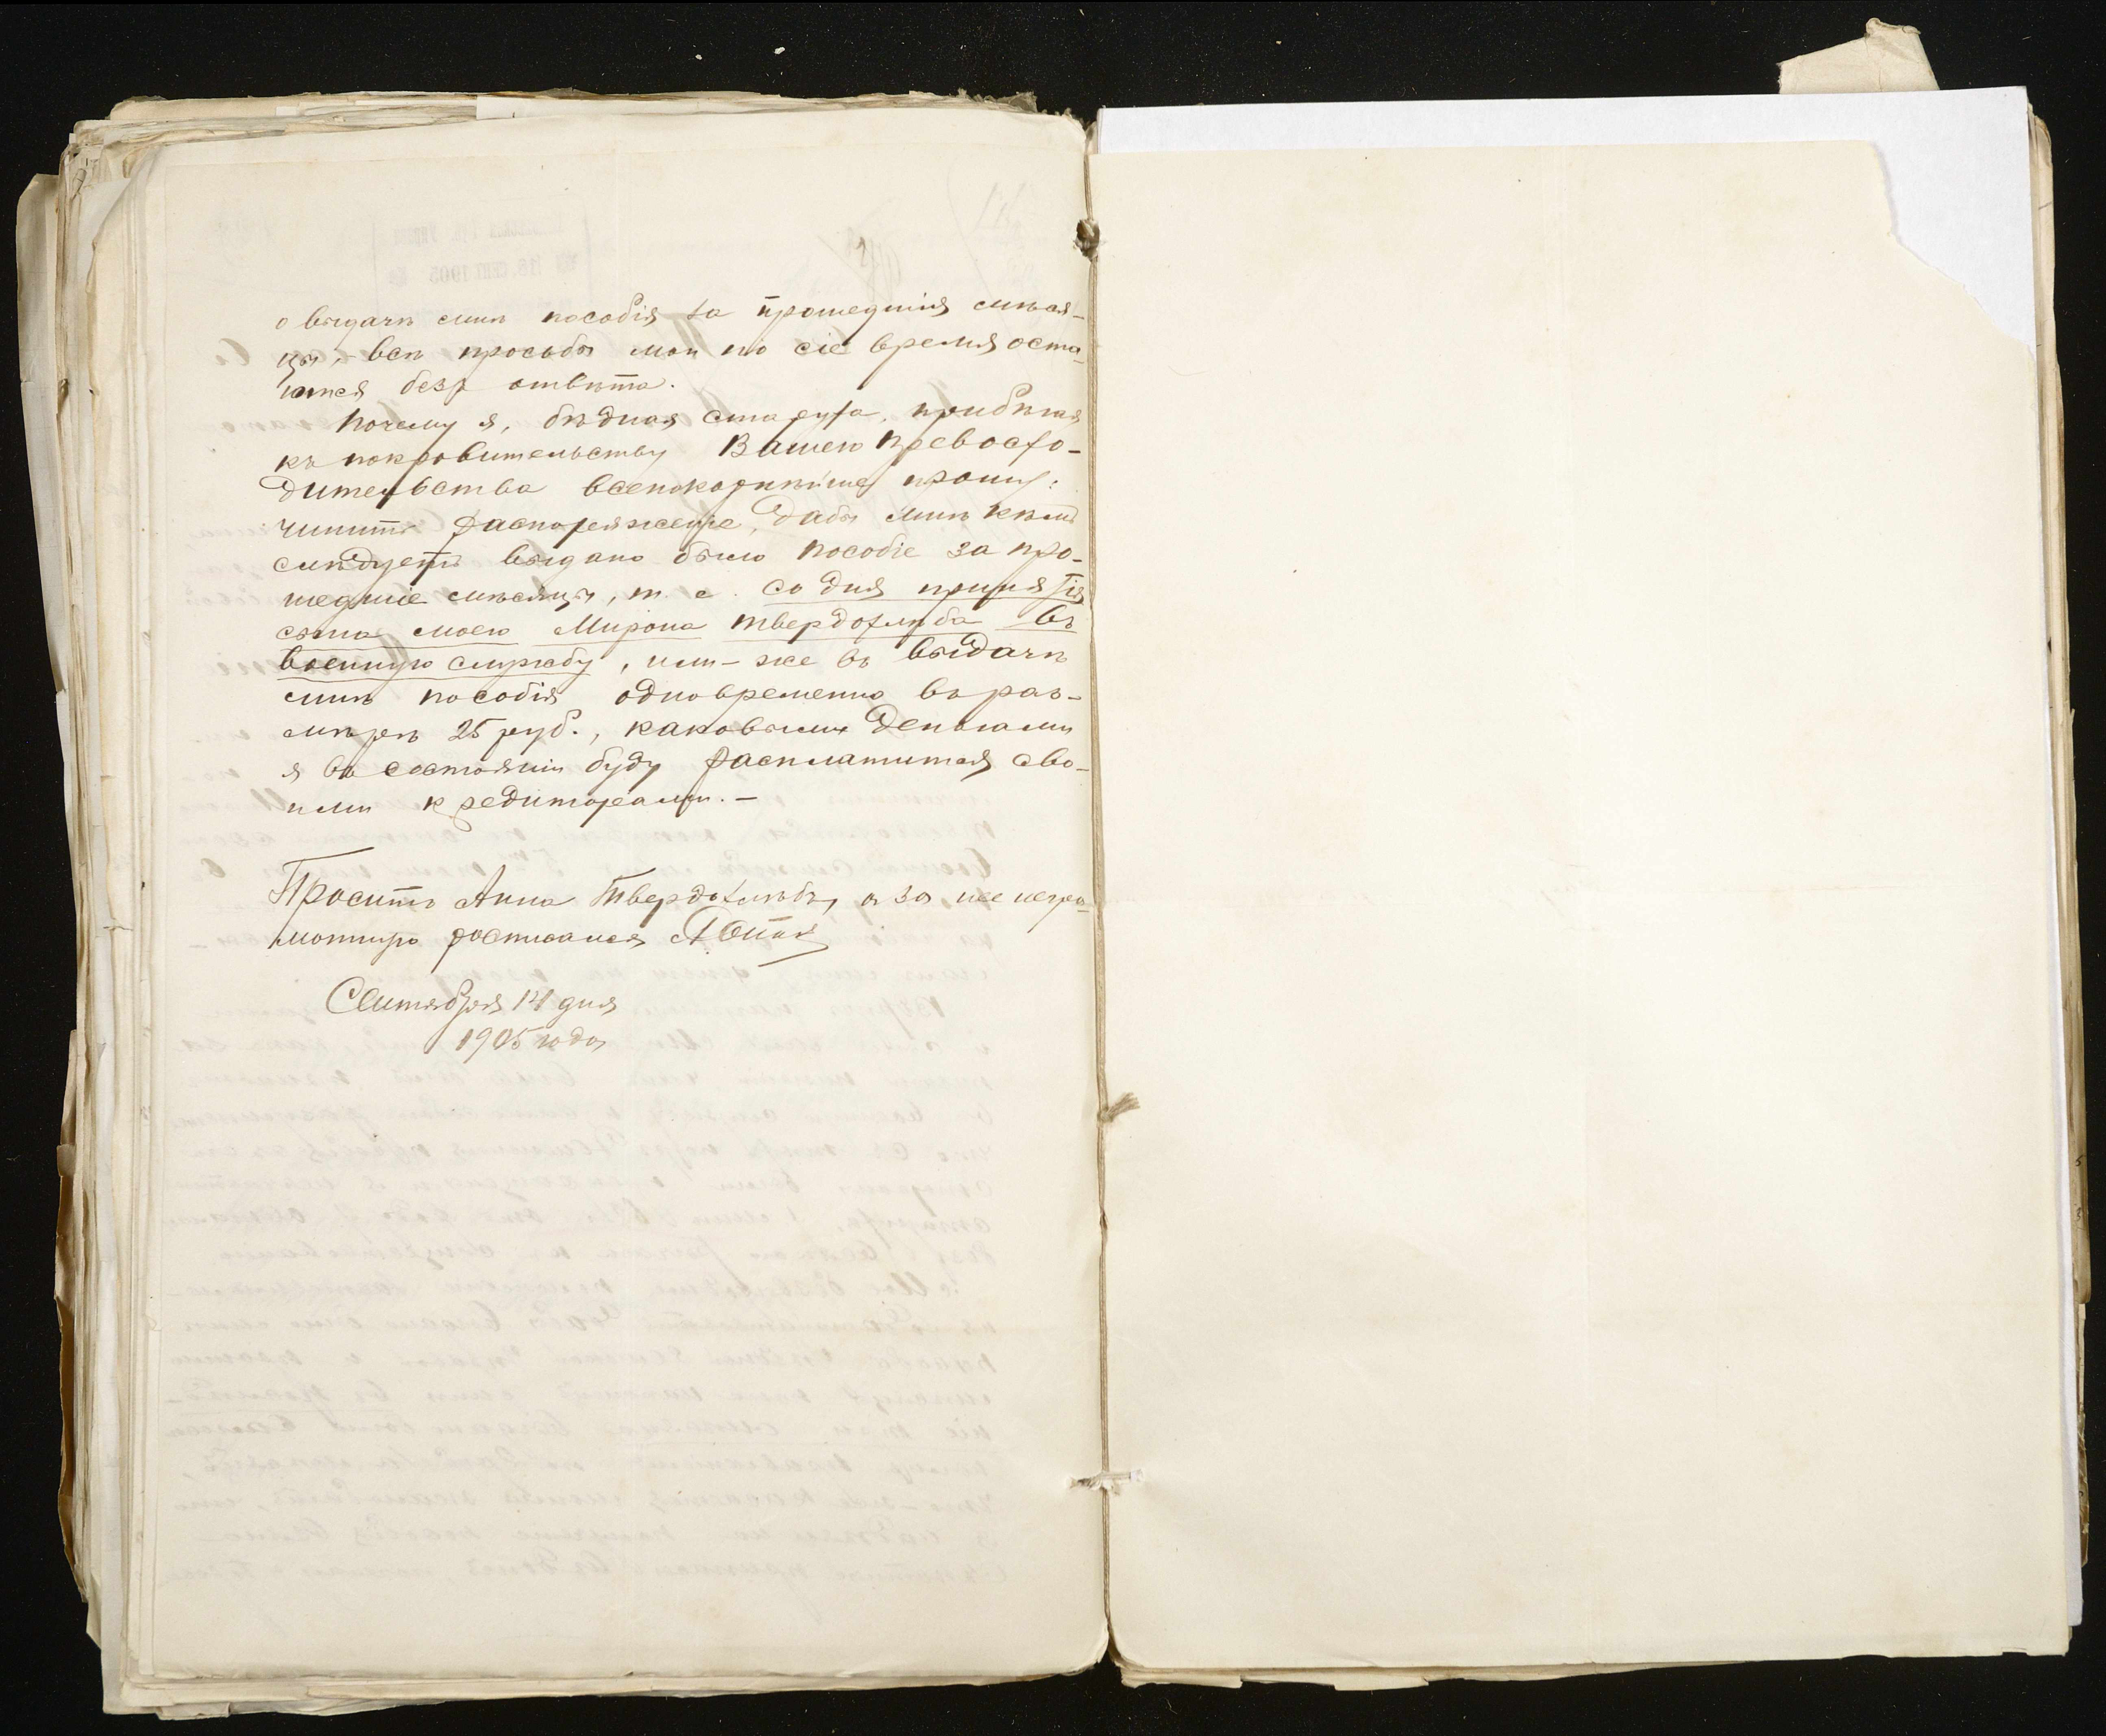 о выдачѣ мнѣ пособія за прошедшія мѣся-
цы, – всѣ просьбы мои по сіе время оста-
ются безъ отвѣта.
Почему я, бѣдная старуха, прибѣгая
къ покровительству Вашего Превосхо-
дительства всепокорнѣйше прошу:
учинить распоряженіе, дабы мнѣ кѣмъ
слѣдуетъ выдано было пособіе за про-
шедшіе мѣсяцы, т. е. со дня принятія
сына моего Мирона Твердохлѣба въ
военную службу, или-же въ выдачѣ
мнѣ пособія одновременно въ раз-
мѣрѣ 25 руб., каковыми деньгами
я въ состояніи буду расплатится сво-
ими кредиторами. –
Проситъ Анна Твердохлѣбъ, а за нее негра-
мотную росписался
Сентября 14 дня
1905 года